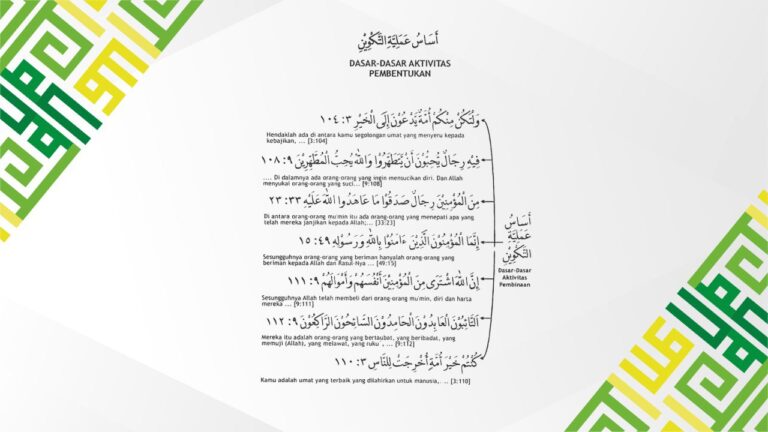 أَسَاسُ عَمَلِيَّةِ التَّكْوِيْنِ
DASAR-DASAR AKTIVITAS
PEMBENTUKAN
وَلْتَكُنْ مِنْكُمْ أُمَّةٌ يَدْعُوْنَ إِلَى الْخَيْرِ ٣: ١٠٤
Hendaklah ada di antara kamu segolongan umat yang menyeru kepada
kebajikan, ... [3:104]
فِيْهِ رِجَالٌ يُحِبُّوْنَ أَنْ يَتَطَهَّرُوْا وَاللهُ يُحِبُّ الْمُطَّهِّرِيْنَ ٩: ١٠٨
.... Di dalamnya ada orang-orang yang ingin mensucikan diri. Dan Allah
menyukai orang-orang yang suci... [9:108]
مِنَ الْمُؤْمِنِيْنَ رِجَالٌ صَدَقُوْا مَا عَاهَدُوا اللهَ عَلَيْهِ ٣٣: ٢٣
Di antara orang-orang mu'min itu ada orang-orang yang menepati apa yang
telah mereka janjikan kepada Allah;... [33:23]
إِنَّمَا الْمُؤْمِنُوْنَ الَّذِيْنَ ءَامَنُوْا بِاللهِ وَرَسُوْلِهِ ٤٩: ١٥
Sesungguhnya orang-orang yang beriman hanyalah orang-orang yang
beriman kepada Allah dan Rasul-Nya ... [49:15]
إِنَّ اللهَ اشْتَرَى مِنَ الْمُؤْمِنِيْنَ أَنْفُسَهُمْ وَأَمْوَالَهُمْ ٩: ١١١
Sesungguhnya Allah telah membeli dari orang-orang mu'min, diri dan harta
mereka ... [9:111]
اَلتَّائِبُوْنَ الْعَابِدُوْنَ الْحَامِدُوْنَ السَّائِحُوْنَ الرَّاكِعُوْنَ ٩: ١١٢
Mereka itu adalah orang-orang yang bertaubat, yang beribadat, yang
memuji (Allah), yang melawat, yang ruku`, ... [9:112]
كُنْتُمْ خَيْرَ أُمَّةٍ أُخْرِجَتْ لِلنَّاسِ ٣: ١١٠
Kamu adalah umat yang terbaik yang dilahirkan untuk manusia, ... [3:110]
أَسَاسُ
عَمَلِيَّةِ
التَّكْوِيْنِ
Dasar-Dasar
Aktivitas
Pembinaan